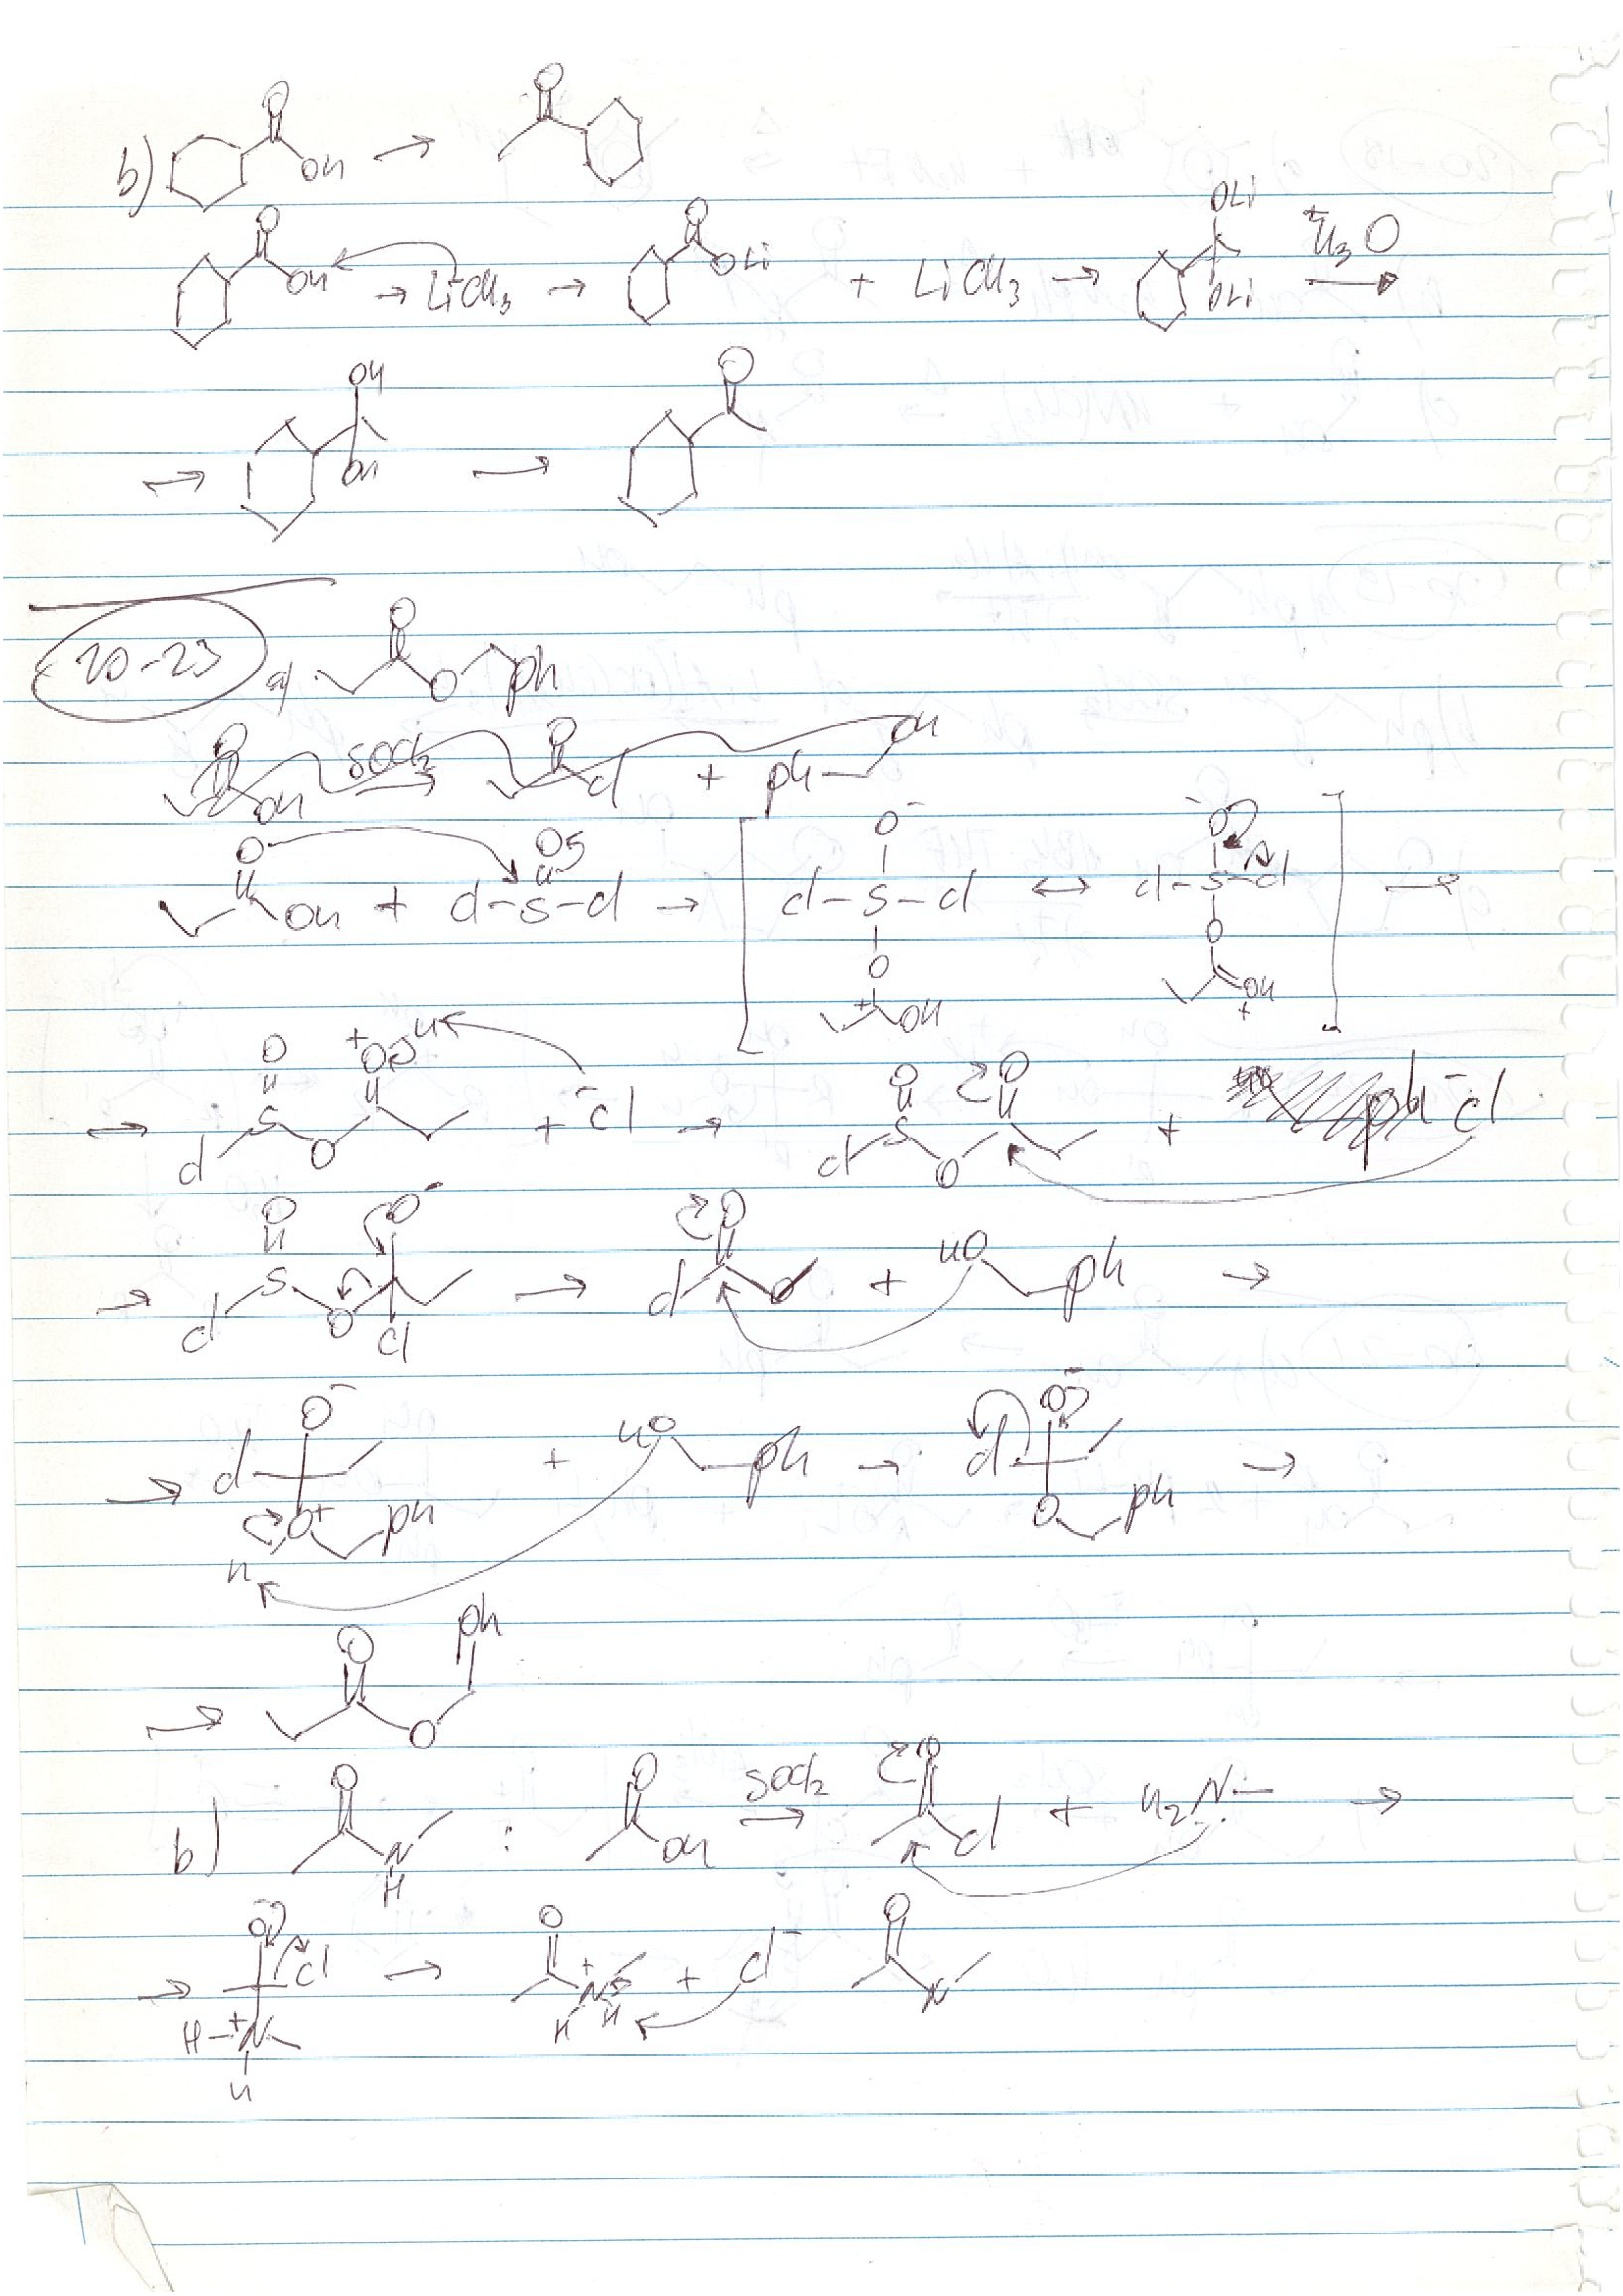 b) O OH → O
O OH → LiCH3 → O OLi + LiCH3 → OLi OLi +H3O →
→ OH OH → O
20-23 a) O O ph
O OH SOCl2 → O Cl + ph OH
O OH + Cl-S-Cl O → [ O- Cl-S-Cl O + OH ↔ -O Cl-S-Cl O OH + ] →
→ O S Cl O +O H + -Cl → O S Cl O O + ph -Cl
→ O S Cl O O- Cl → O Cl + HO ph →
→ O- Cl O+ H ph + HO ph → O- Cl O ph →
→ O O ph
b) O N H : O OH SOCl2 → O Cl + H2N̈- →
→ O- Cl H-+N- H → O +N H H + Cl- O N